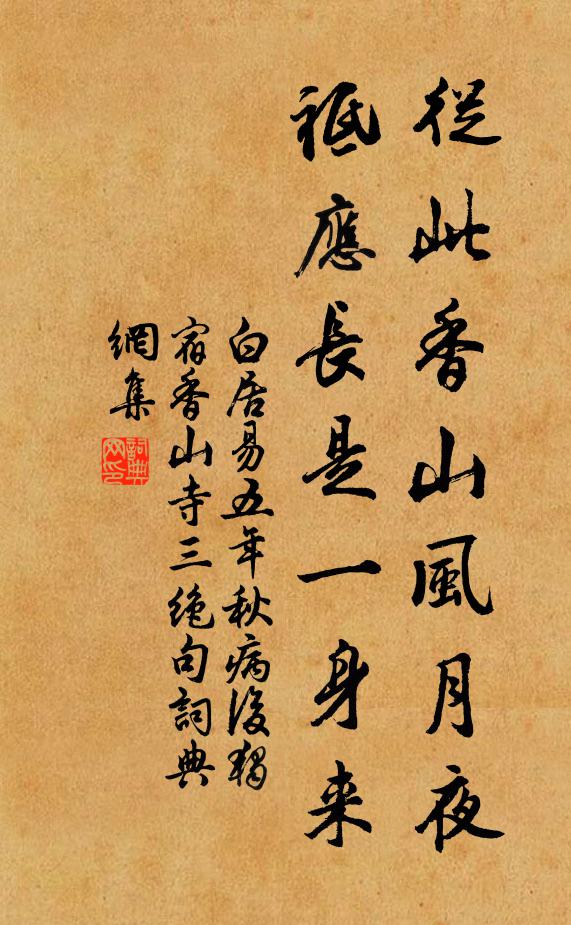 從此香山風月夜
祗應長是一身来
白居易五年秋病後獨
宿香山寺三絶句詞典
網集
詞典
网印